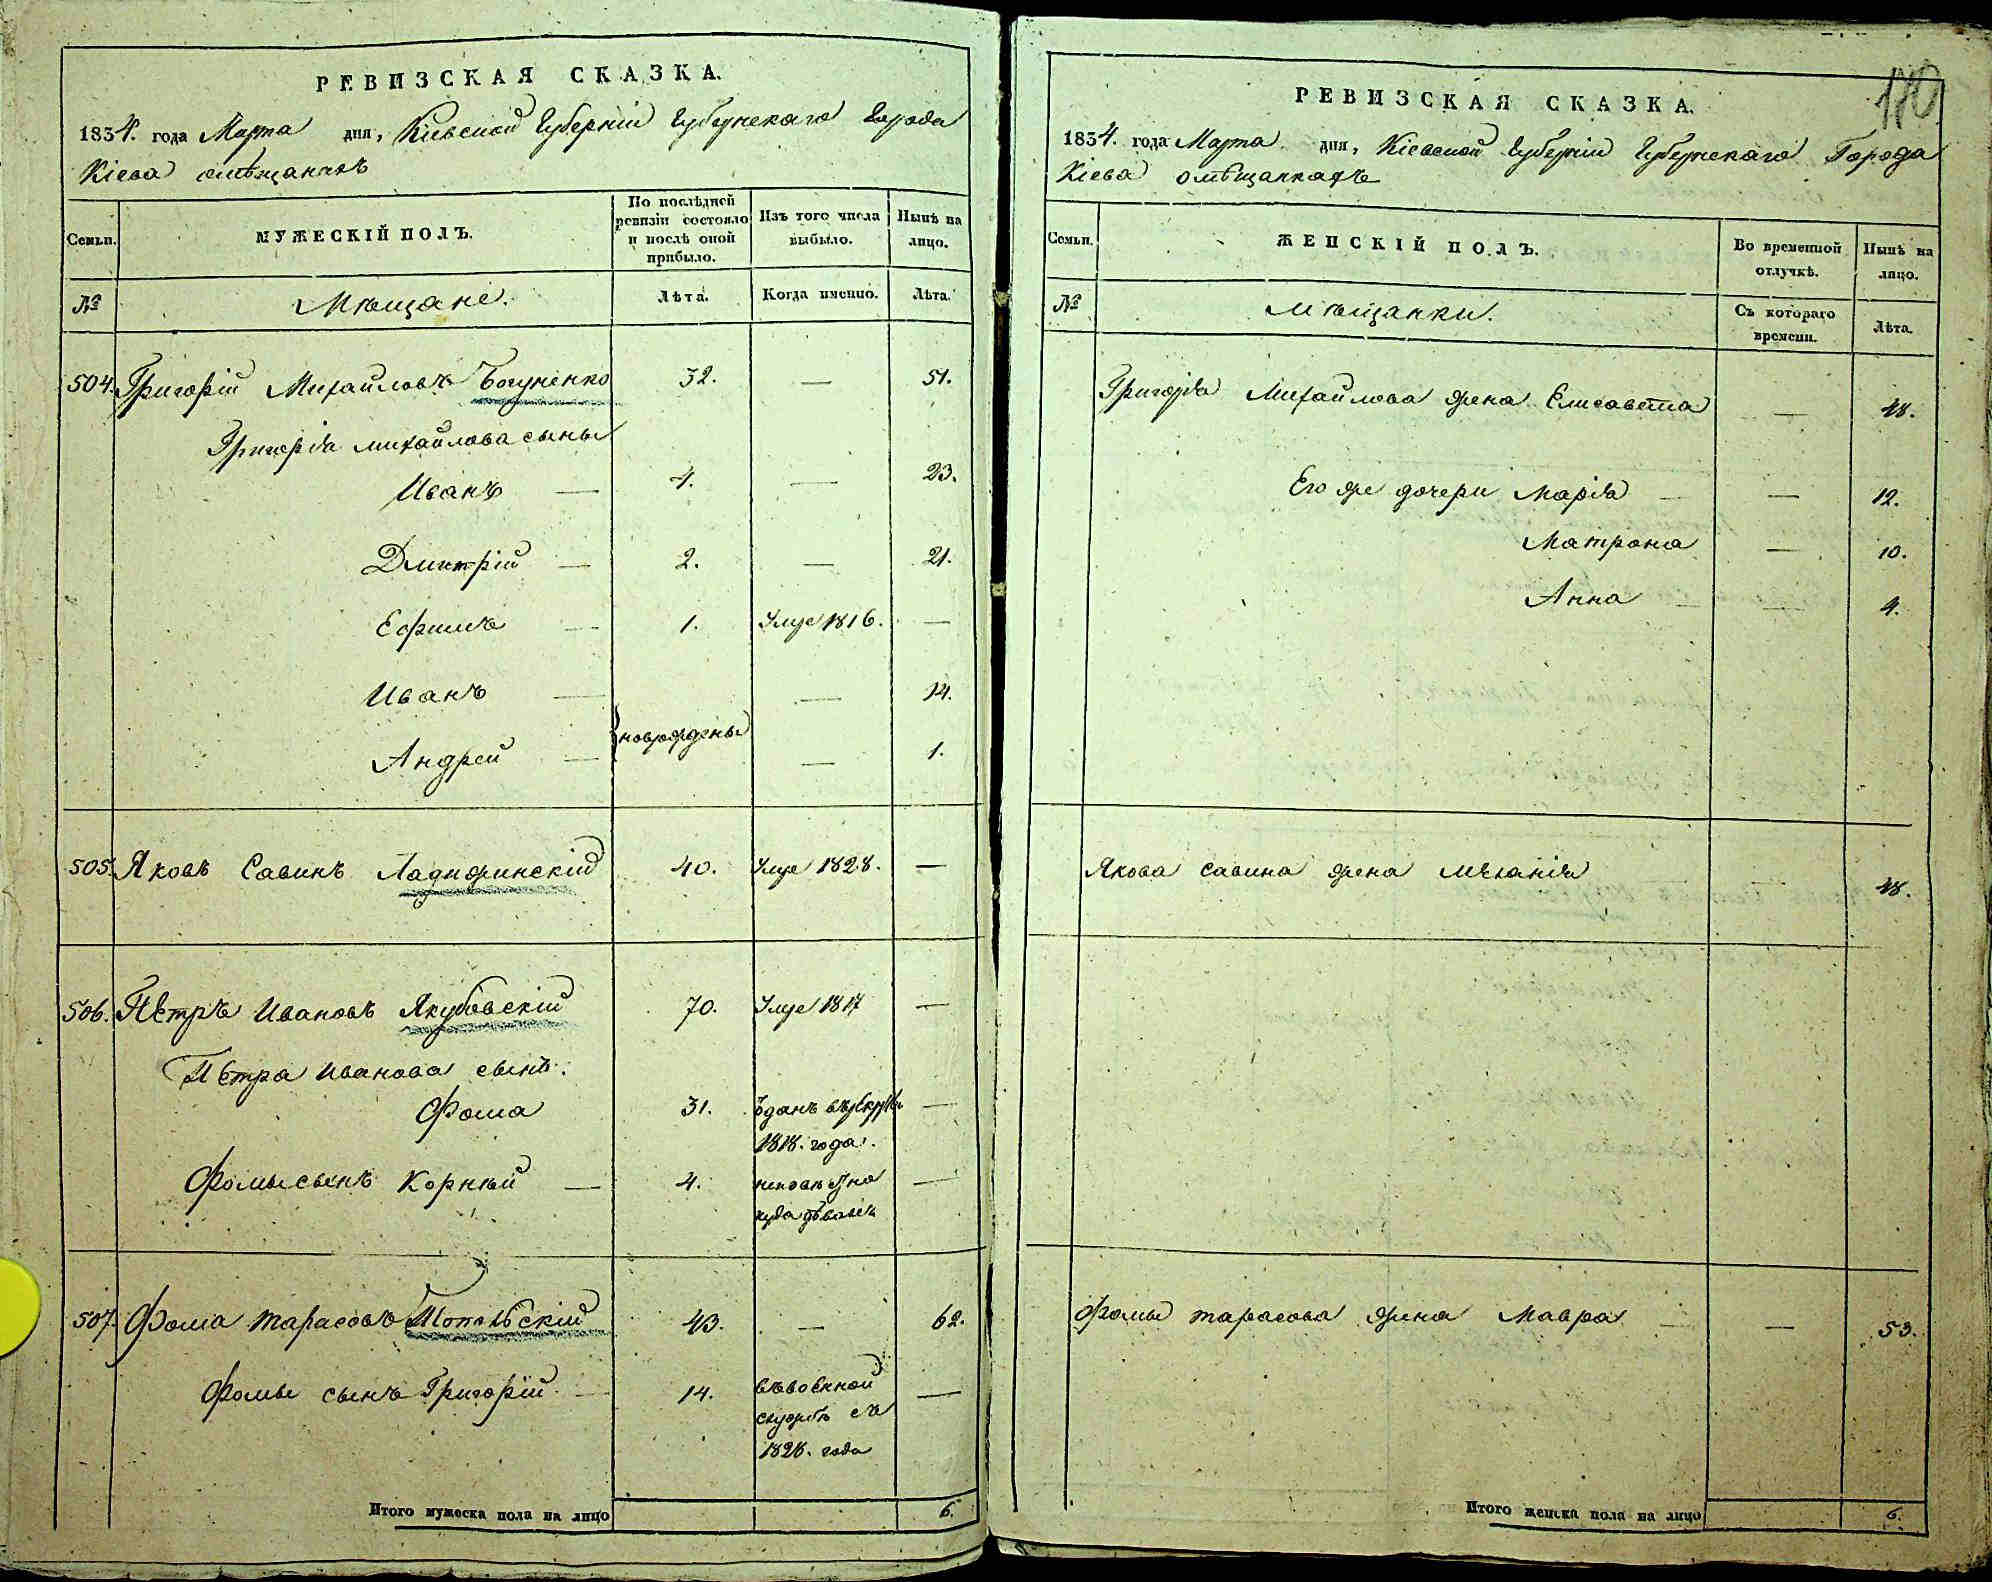 РЕВИЗСКАЯ СКАЗКА.
1834. года Марта дня, Кіевской Губерніи Губернскаго Города
Кіева омѣщанахъ
Семьи.
МУЖЕСКІЙ ПОЛЪ.
По послѣдней
ревизіи состояло
и послѣ оной
прибыло.
Изъ того числа
выбыло.
Нынѣ на
лицо.
№
Мѣщане.
Лѣта.
Когда именно.
Лѣта.
504. Григорій Михайловъ 32. — 51.
Григорія михайлова сыны
Иванъ — 4. — 23.
Дмитрій — 2. — 21.
Ефимъ — 1. Умре 1816. —
Иванъ — — 14.
новрождены
Андрей — — 1.
505. Яковъ Савинъ 40. Умре 1828. —
506. Петръ Ивановъ Якубовскій 70. Умре 1817 —
Петра Иванова сынъ.
Фома 31. —
1818. года.
Фомы сынъ Корнѣй — 4. неизвѣстно —
куда дѣвался
507. Фома тарасовъ 43. — 62.
Фомы сынъ Григорій — 14. въвоенной —
службѣ съ
1828. года
Итого мужеска пола на лицо 6.
110
РЕВИЗСКАЯ СКАЗКА.
1834. года Марта дня, Кіевской Губерніи Губернскаго Города
Кіева омѣщанкахъ
Семьи.
ЖЕНСКІЙ ПОЛЪ.
Во временной
отлучкѣ.
Нынѣ на
лицо.
№
Мѣщанки.
Съ котораго
времени.
Лѣта.
Григорія Михайлова жена Елисавета — 48.
Его же дочери Марія — — 12.
Матрона — 10.
Анна — — 4.
Якова Савина жена Меланія — 48.
Фомы тарасова жена Мавра — — 53.
Итого женска пола на лицо 6.